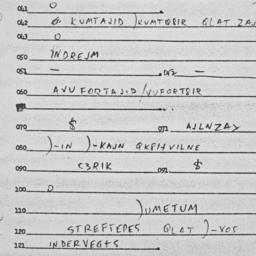 041 0
042 KUMTAJID )KUMTQBIR QLAT ZAJ
043 0
050 INDREJM
051 — .052 —
060 AVU FORTAJID/VUFORTBIR
070 $ 072 AJLNZAY
080 )-IN )-KAJN QKPHVILNE
090 C3RIK 092 $
100 0
110 )UMETUM
120 STREFTEPES QLAT )-VOS
121 INDERVEGTS